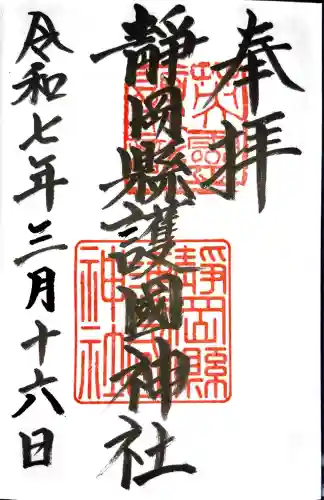 奉拝
靜岡縣護國神社
令和七年三月十六日
英霊
靜岡縣
護國
神社